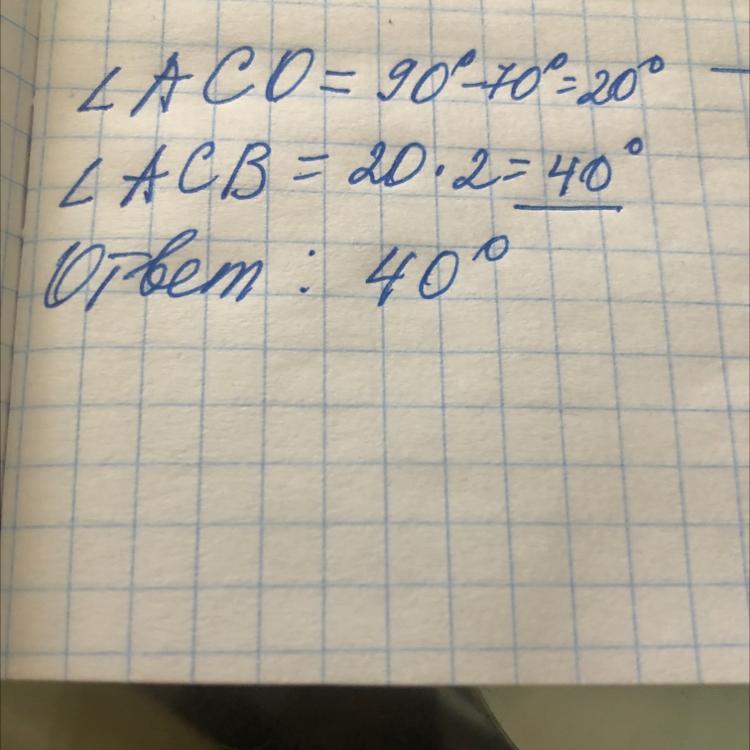 ∠ACO = 90°-70°=20°
∠ACB = 20·2=40°
Ответ: 40°